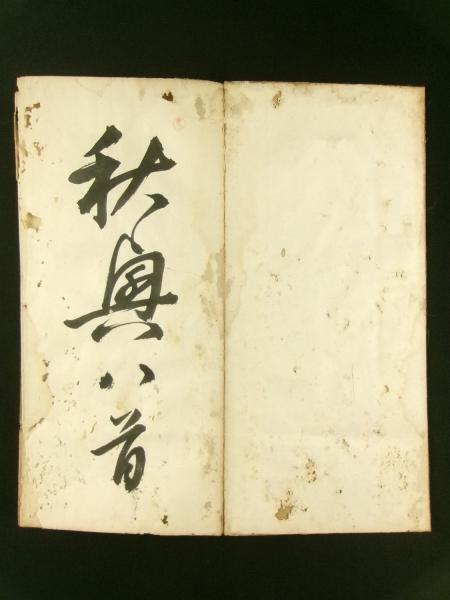 秋興八首